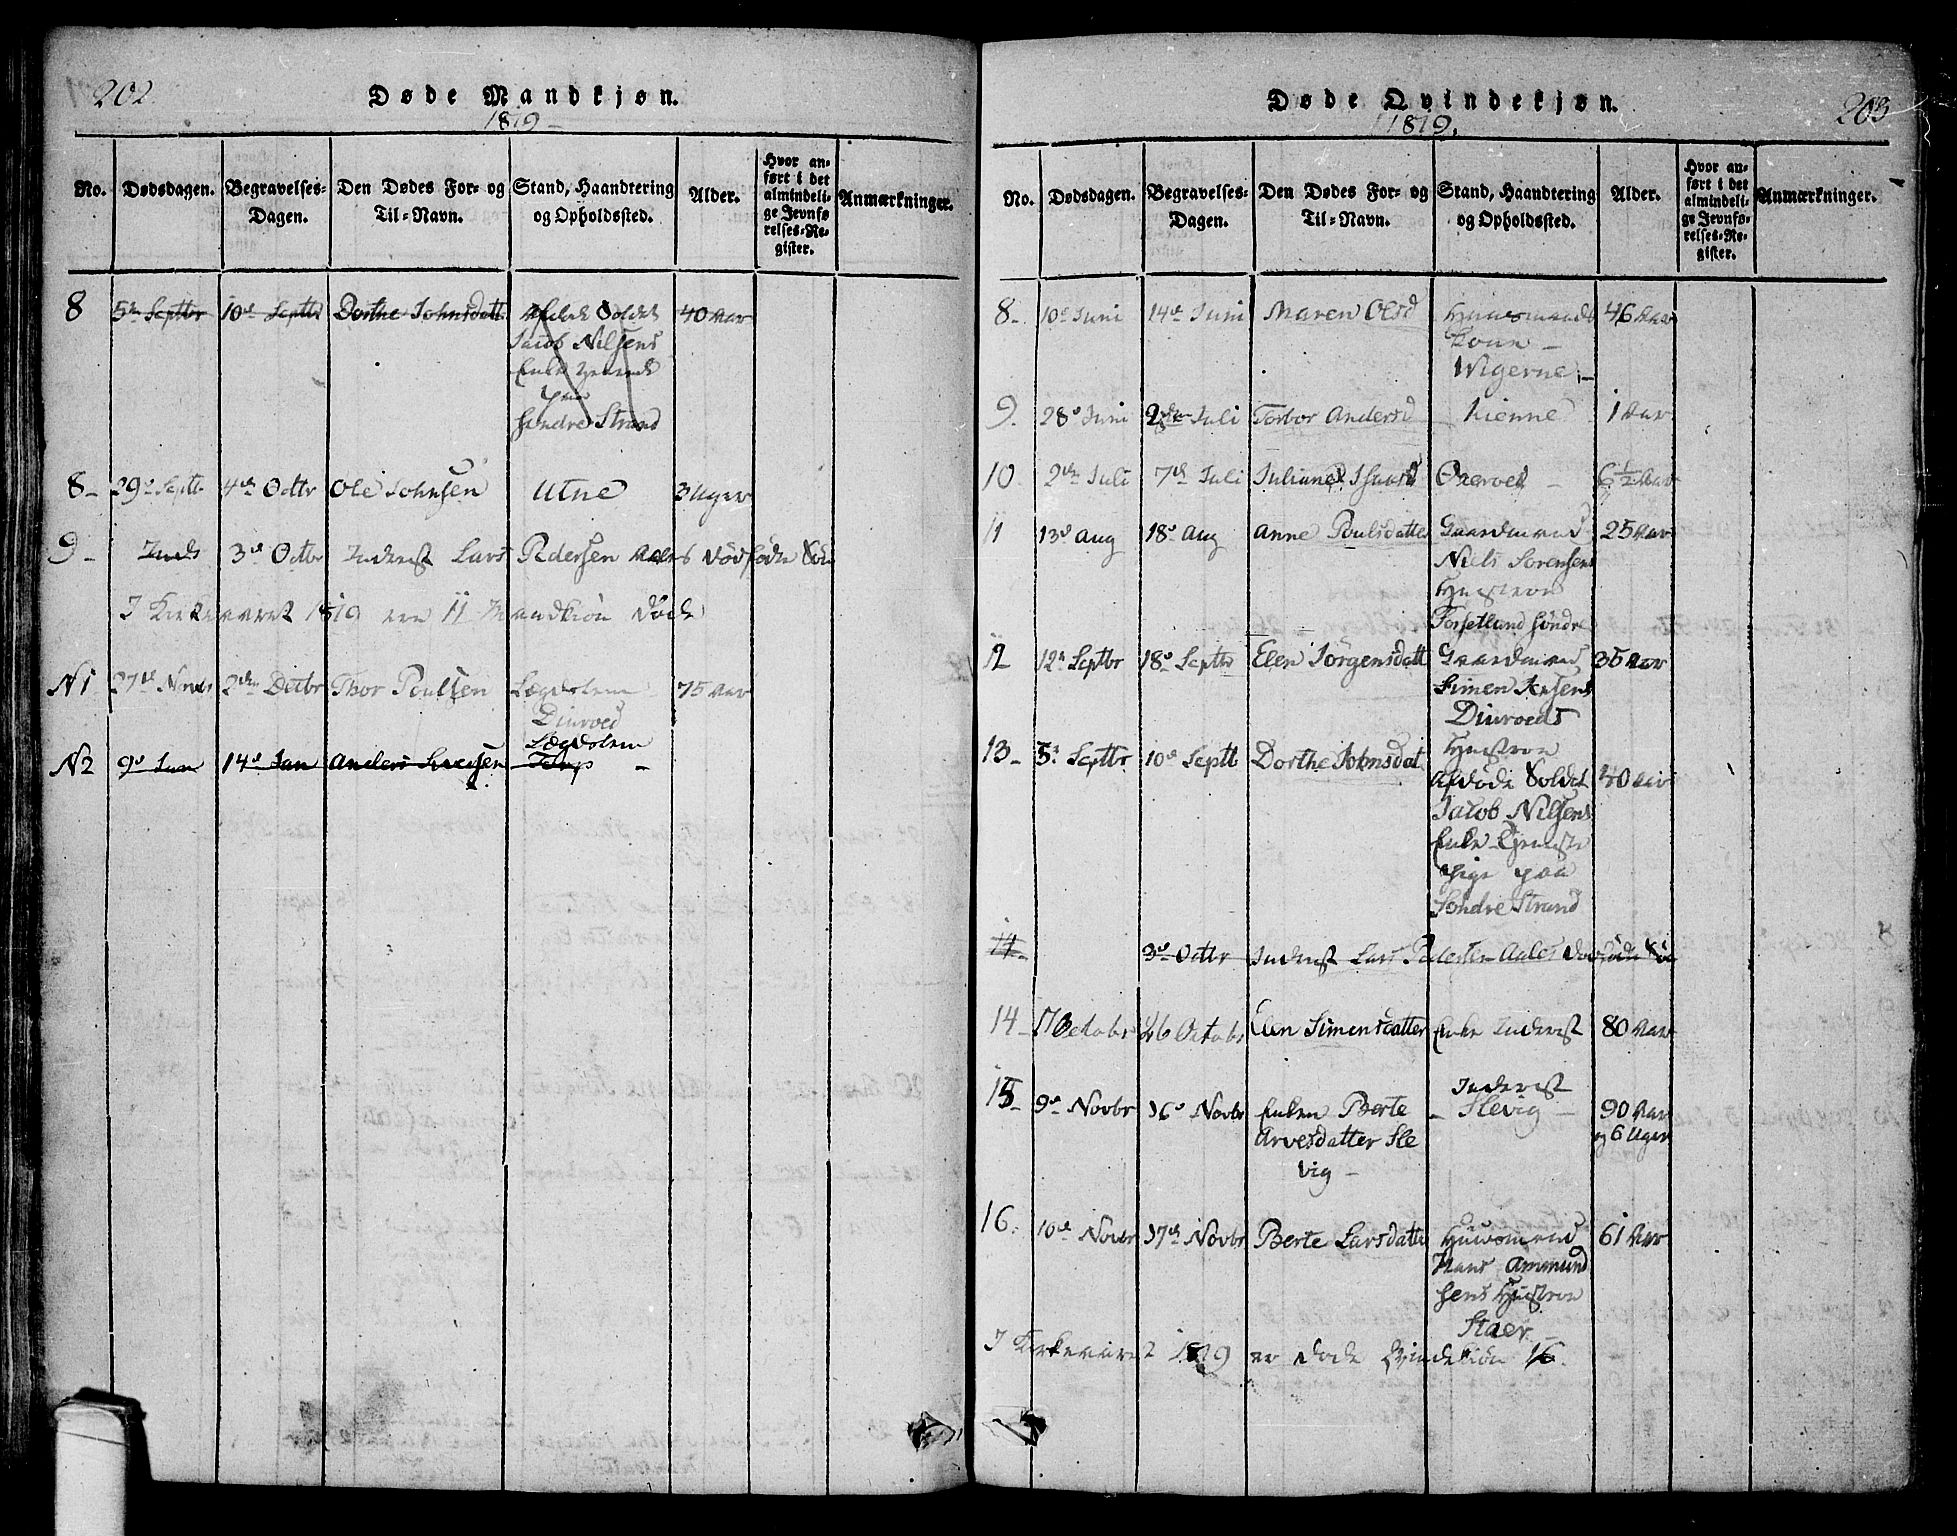 202.
Døde Mandkjøn.
1819 –
No.
Dødsdagen.
Begravelses-
Dagen.
Den Dødes For- og
Til-Navn.
Stand, Haandtering
og Opholdssted.
Alder.
Hvor an-
ført i det
almindeli-
ge Jevnfø
relses-Re-
gister.
Anmærkninger.
8 5te Septbr 10de Septbr Dorthe Johnsdatt Soldat 40 Aar
Jacob Nilsens
Enke
paa
Søndre Strand
8 – 29de Septbr 4de Octbr Ole Johnsen Utne 3 Uger
9 – 3de Octbr Inderst Lars Pedersen Aales dødfødte Søn
I Kirkeaaret 1819 ere 11 Mandkiøn døde
N1 27de Novbr 2den Decbr Thor Poulsen Lægdslem 75 Aar
Diurved
N2 9de Jan 14de Jan Anders Larssen Lægdslem
203
Døde Qvindekjøn.
1819.
No.
Dødsdagen.
Begravelses-
Dagen.
Den Dødes For- og
Til-Navn.
Stand, Haandtering
og Opholdssted.
Alder.
Hvor an-
ført i det
almindeli-
ge Jevnfø-
relses-Re-
gister.
Anmærkninger.
8 – 10de Juni 14de Juni Maren Olsd Huusmands 46 Aar
Kone –
Wigerne –
9. 28de Juni 2den Juli Torbor Andersd Lienne 1 Aar
10 2den Juli 7de Juli Juliane 6 1/2 Aar
11 13de Aug 18de Aug Anne Poulsdatter Gaardmand 25 Aar
Niels Sørensens
Hustrue
Forsetlund søndre
12 12te Septbr 18de Septbr Elen Jørgensdatt Gaardmand 35 Aar
Simen
Diurveds
Hustroe
13 – 5te Septbr 10de Septbr Dorthe Johnsdat. Afdøde Soldat 40 Aar
Jacob Nilsens
Enke Tjeneste
Pige paa
Søndre Strand
14 – 3de Octbr Inderst Lars Pedersen Aales dødfødte Søn
14 – Octobr 16 Octobr Elen Simensdatter Enke Inderst 80 Aar
15 – 9de Novbr 16de Novbr Enken Berte Inderst
Slevig – 90 Aar
Arvesdatter Sle og 6 Uger
vig –
16. 10de Novbr 17de Novbr Berte Larsdatte Huusmand 61 Aar
Hans Ammund
sens Hustroe
Staer –
I Kirkeaaret 1819 er døde Qvindekiøn 16.